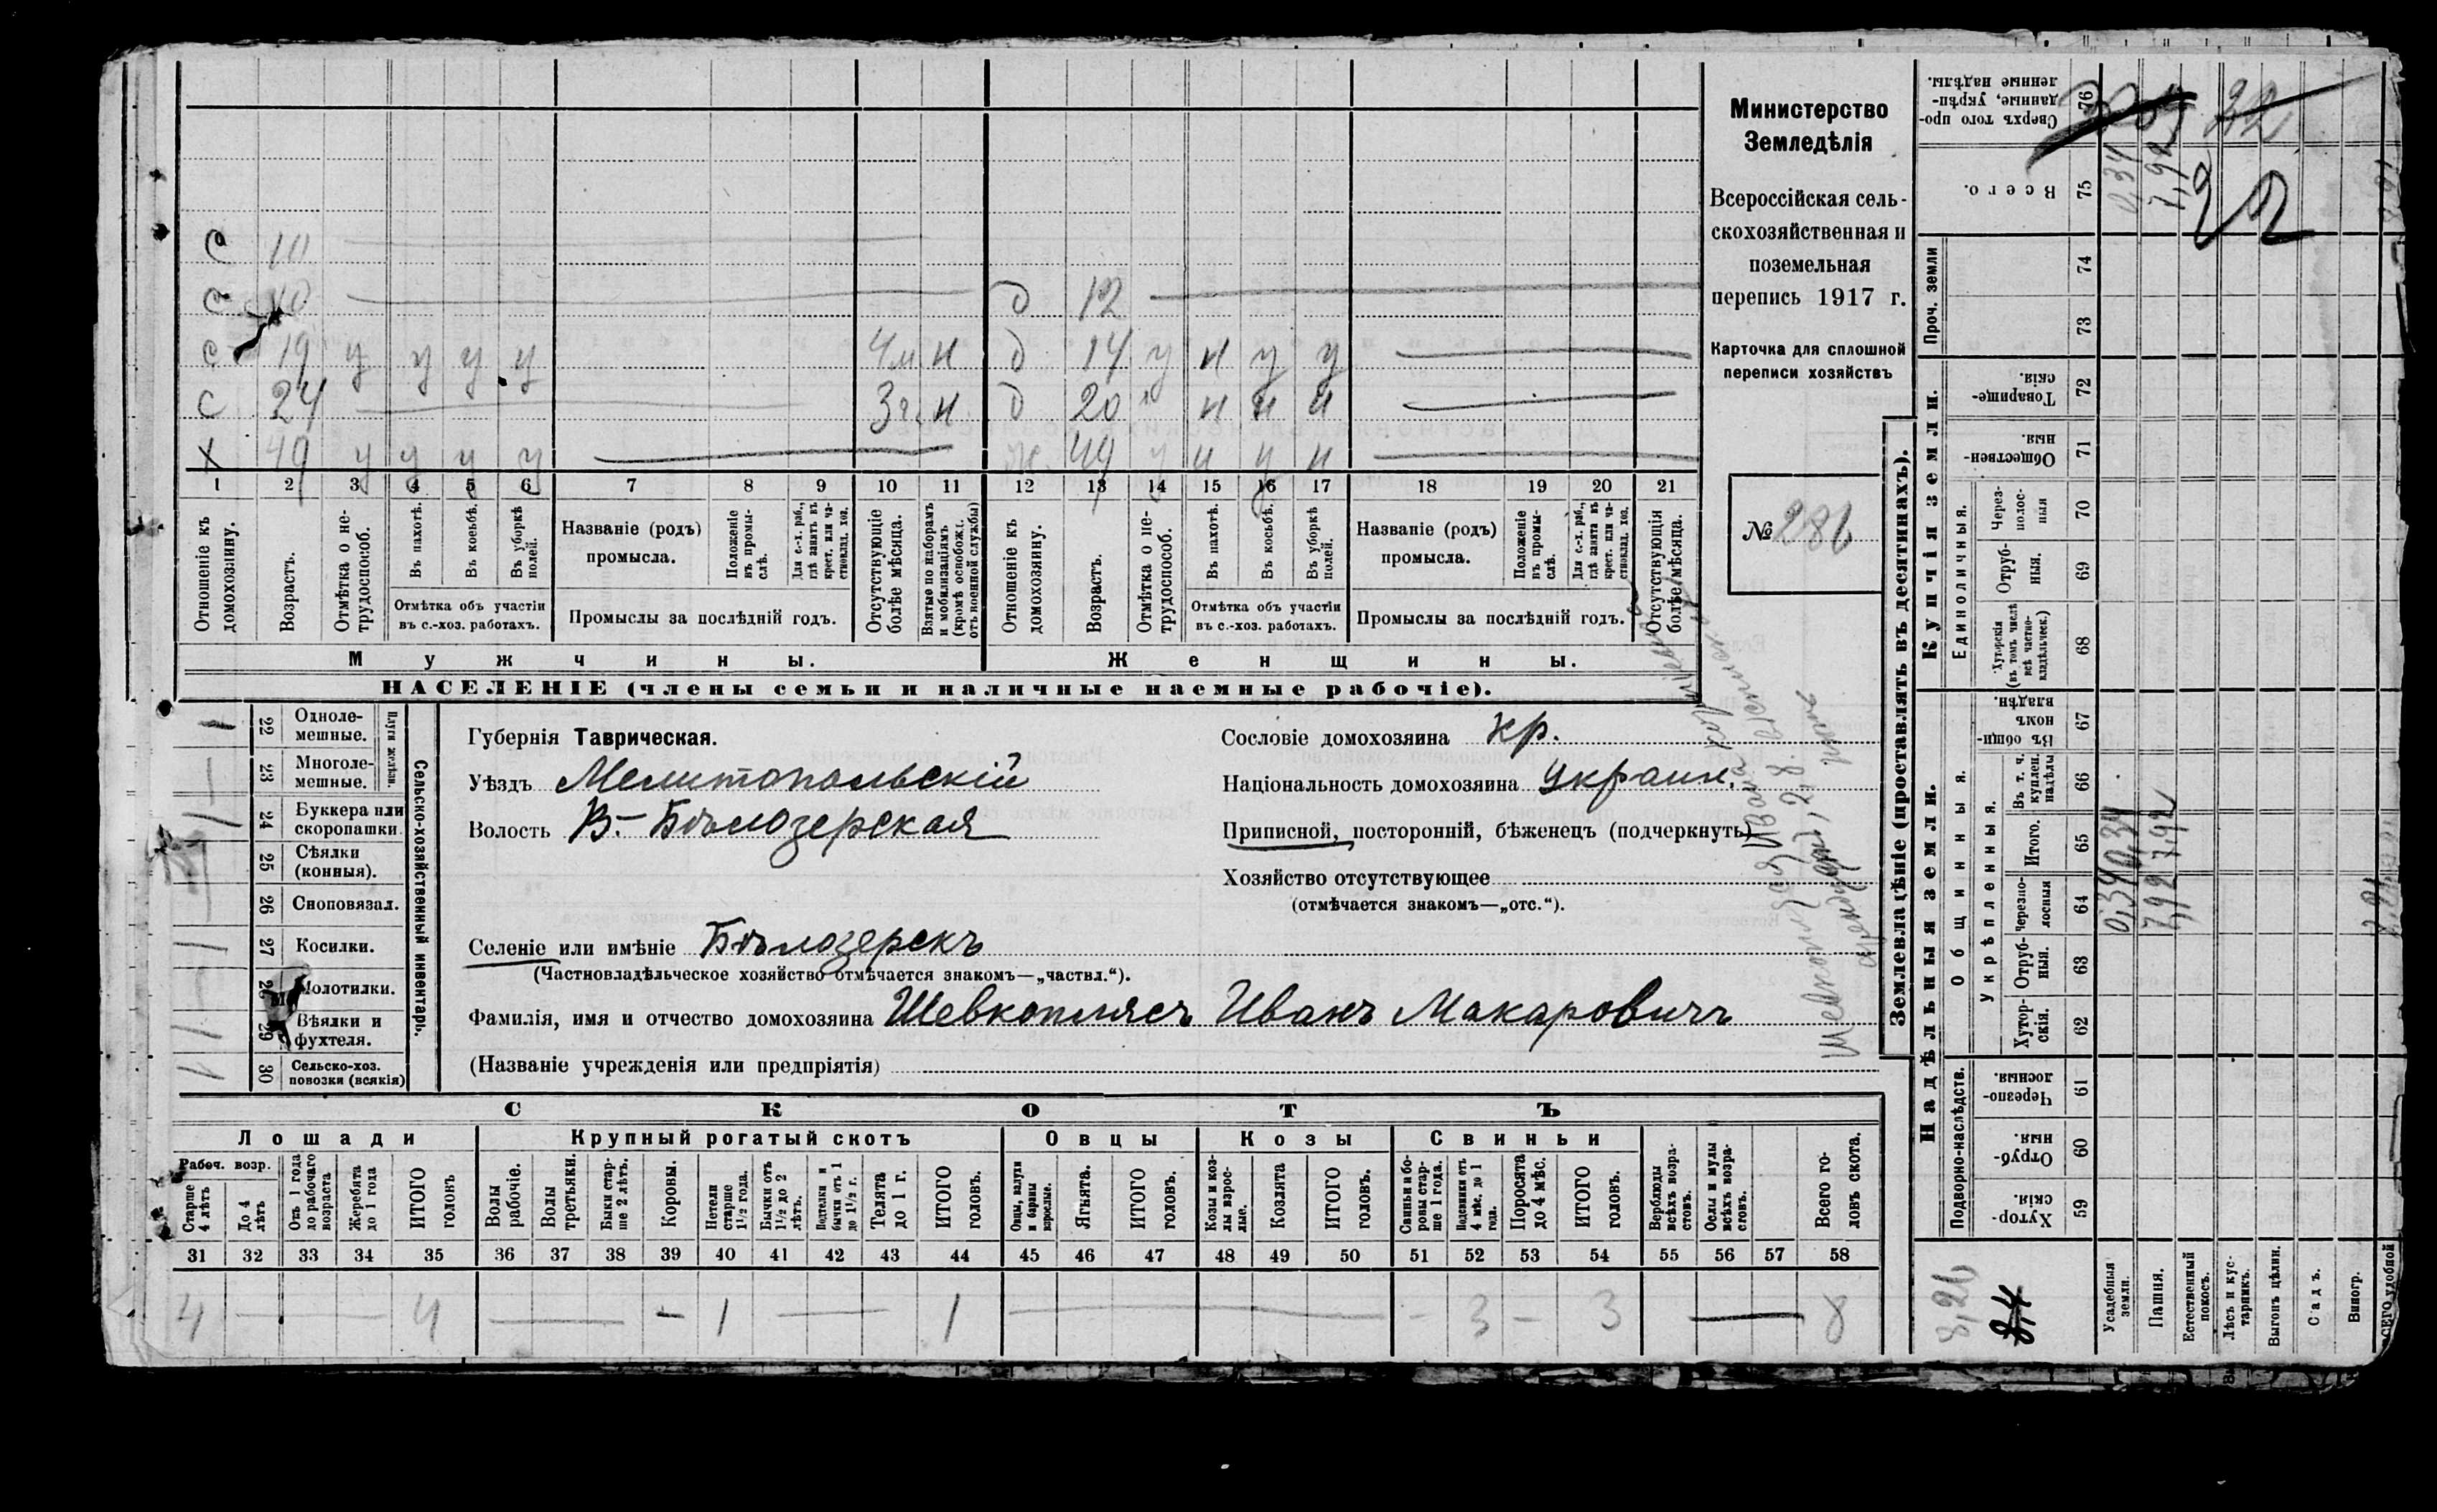 С 10
С 10 д 12
С 19 у у у у 4м н д 14 у н у у
С 24 3г. н д 20 н н н
Х 49 у у у у ж. 49 у н у н
1 2 3 4 5 6 7 8 9 10 11 12 13 14 15 16 17 18 19 20 21
Отношеніе къ домохозяину.
Возрастъ.
Отмѣтка о нетрудоспособ.
Въ пахотѣ.
Въ косьбѣ.
Въ уборкѣ полей.
Отмѣтка объ участіи
въ с.-хоз. работахъ.
Названіе (родъ)
промысла.
Положеніе въ промыслѣ.
Для с.-х. раб., гдѣ занятъ въ крест. или частновлад. хоз.
Промыслы за послѣдній годъ.
Отсутствующіе болѣе мѣсяца.
Взятые по наборамъ и мобилизаціямъ (кромѣ освобожд. отъ военной службы)
Отношеніе къ домохозяину.
Возрастъ.
Отмѣтка о нетрудоспособ.
Въ пахотѣ.
Въ косьбѣ.
Въ уборкѣ полей.
Отмѣтка объ участіи
въ с.-хоз. работахъ.
Названіе (родъ)
промысла.
Положеніе въ промыслѣ.
Для с.-х. раб., гдѣ занята въ крест. или частновлад. хоз.
Промыслы за послѣдній годъ.
Отсутствующія болѣе мѣсяца.
Мужчины. Женщины.
НАСЕЛЕНІЕ (члены семьи и наличные наемные рабочіе).
Министерство
Земледѣлія
Всероссійская сель-
скохозяйственная и
поземельная
перепись 1917 г.
Карточка для сплошной
переписи хозяйствъ
№ 286
22 Одноле-
мешные.
23 Многоле-
мешные.
Плуги желѣзн.
24 Буккера или
скоропашки.
25 Сѣялки
(конныя).
26 Сноповязал.
27 Косилки.
28 Молотилки.
29 Вѣялки и
фухтеля.
30 Сельско-хоз.
повозки (всякія)
Сельско-хозяйственный инвентарь.
Губернія Таврическая.
Уѣздъ Мелитопольскій
Волость В.-Бѣлозерская
Селеніе или имѣніе Бѣлозерскъ
(Частновладѣльческое хозяйство отмѣчается знакомъ—„частвл.“).
Фамилія, имя и отчество домохозяина Шевкоплясъ Иванъ Макаровичъ
(Названіе учрежденія или предпріятія)
Сословіе домохозяина кр.
Національность домохозяина Украин.
Приписной, посторонній, бѣженецъ (подчеркнуть)
Хозяйство отсутствующее
(отмѣчается знакомъ—„отс.“).
СКОТЪ
Лошади Крупный рогатый скотъ Овцы Козы Свиньи
Рабоч. возр.
Старше 4 лѣтъ
До 4 лѣтъ
Отъ 1 года до рабочаго возраста
Жеребята до 1 года
ИТОГО головъ
Волы рабочіе.
Волы третьяки.
Быки старше 2 лѣтъ.
Коровы.
Нетели старше 1½ года.
Бычки отъ 1½ до 2 лѣтъ.
Подтелки и бычки отъ 1 до 1½ г.
Телята до 1 г.
ИТОГО головъ.
Овцы, валухи и бараны взрослые.
Ягнята.
ИТОГО головъ.
Козы и козлы взрослые.
Козлята
ИТОГО головъ.
Свиньи и боровы старше 1 года.
Подсвинки отъ 4 мѣс. до 1 года.
Поросята до 4 мѣс.
ИТОГО головъ.
Верблюды всѣхъ возрастовъ.
Ослы и мулы всѣхъ возрастовъ.
Всего головъ скота.
31 32 33 34 35 36 37 38 39 40 41 42 43 44 45 46 47 48 49 50 51 52 53 54 55 56 57 58
4 — 4 — - 1 — 1 — - 3 - 3 — 8
Землевладѣніе (проставлять въ десятинахъ).
Надѣльныя земли. Купчія земли. Проч. земли
Подворно-наслѣдств.
Общинныя.
Укрѣпленныя.
Единоличныя.
59 Хуторскія.
60 Отрубныя.
61 Черезполосныя.
62 Хуторскія.
63 Отрубныя.
64 Черезполосныя
65 Итого.
66 Въ т. ч. куплен. надѣлы
67 Въ общинномъ владѣн.
68 Хуторскія (въ томъ числѣ всѣ частновладѣльческ.)
69 Отрубныя.
70 Черезполосныя
71 Общественныя.
72 Товарищескія.
73
74
75 Всего.
76 Сверхъ того проданные, укрѣпленные надѣлы.
Усадебныя земли. 0,34 0,34 0,34
Пашня. 7,92 7,92 7,92
Естественный покосъ.
Лѣсъ и кустарникъ.
Выгонъ цѣлин.
Садъ.
Виногр.
ВСЕГО удобной
8,26
8,4
22